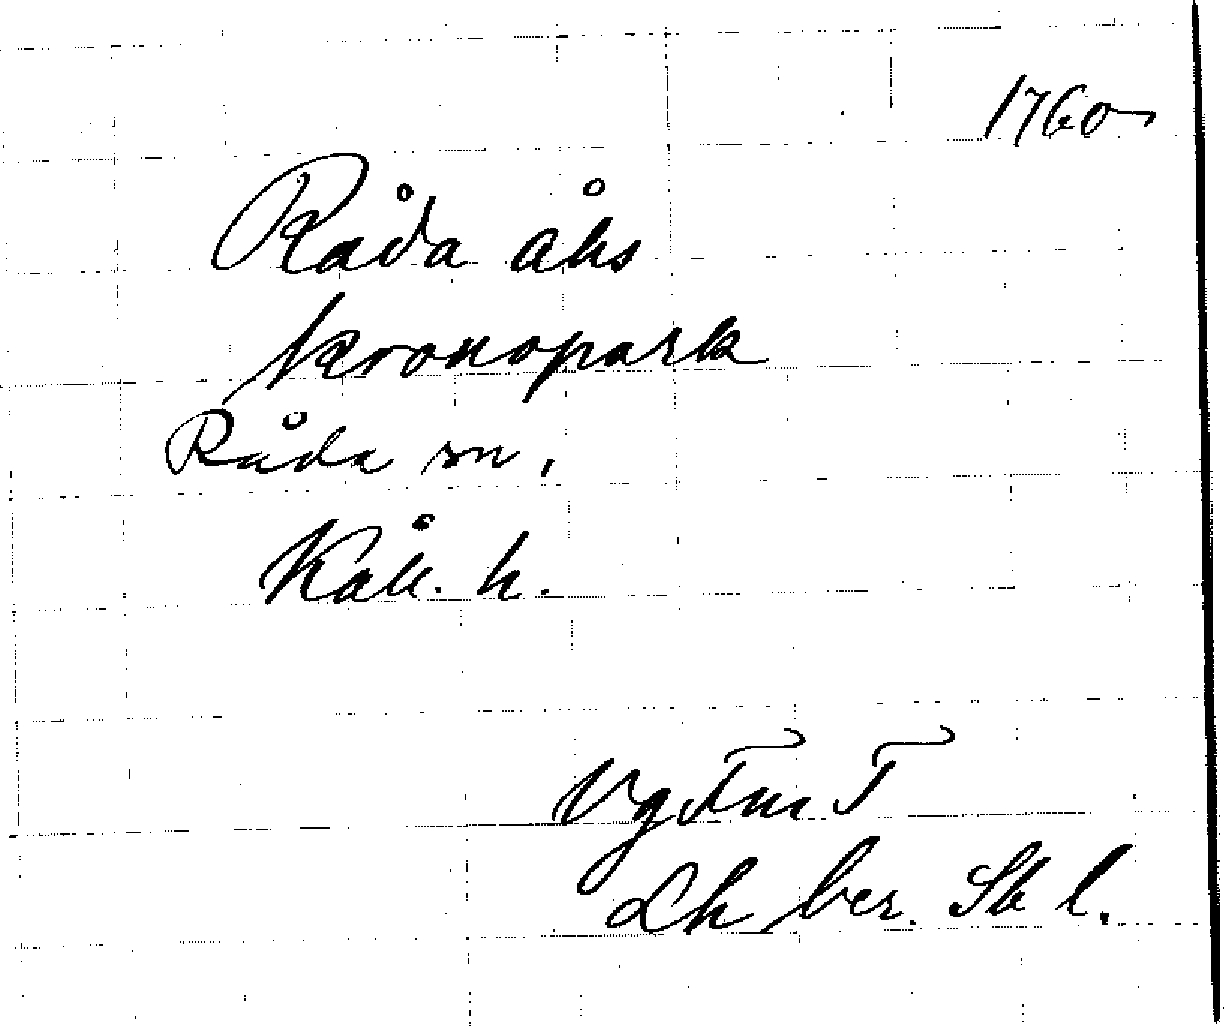 1760
Råda ås
kronopark
Råda sn.
Kåll. h.
Vg Fm T
Lh ber. Sk l.